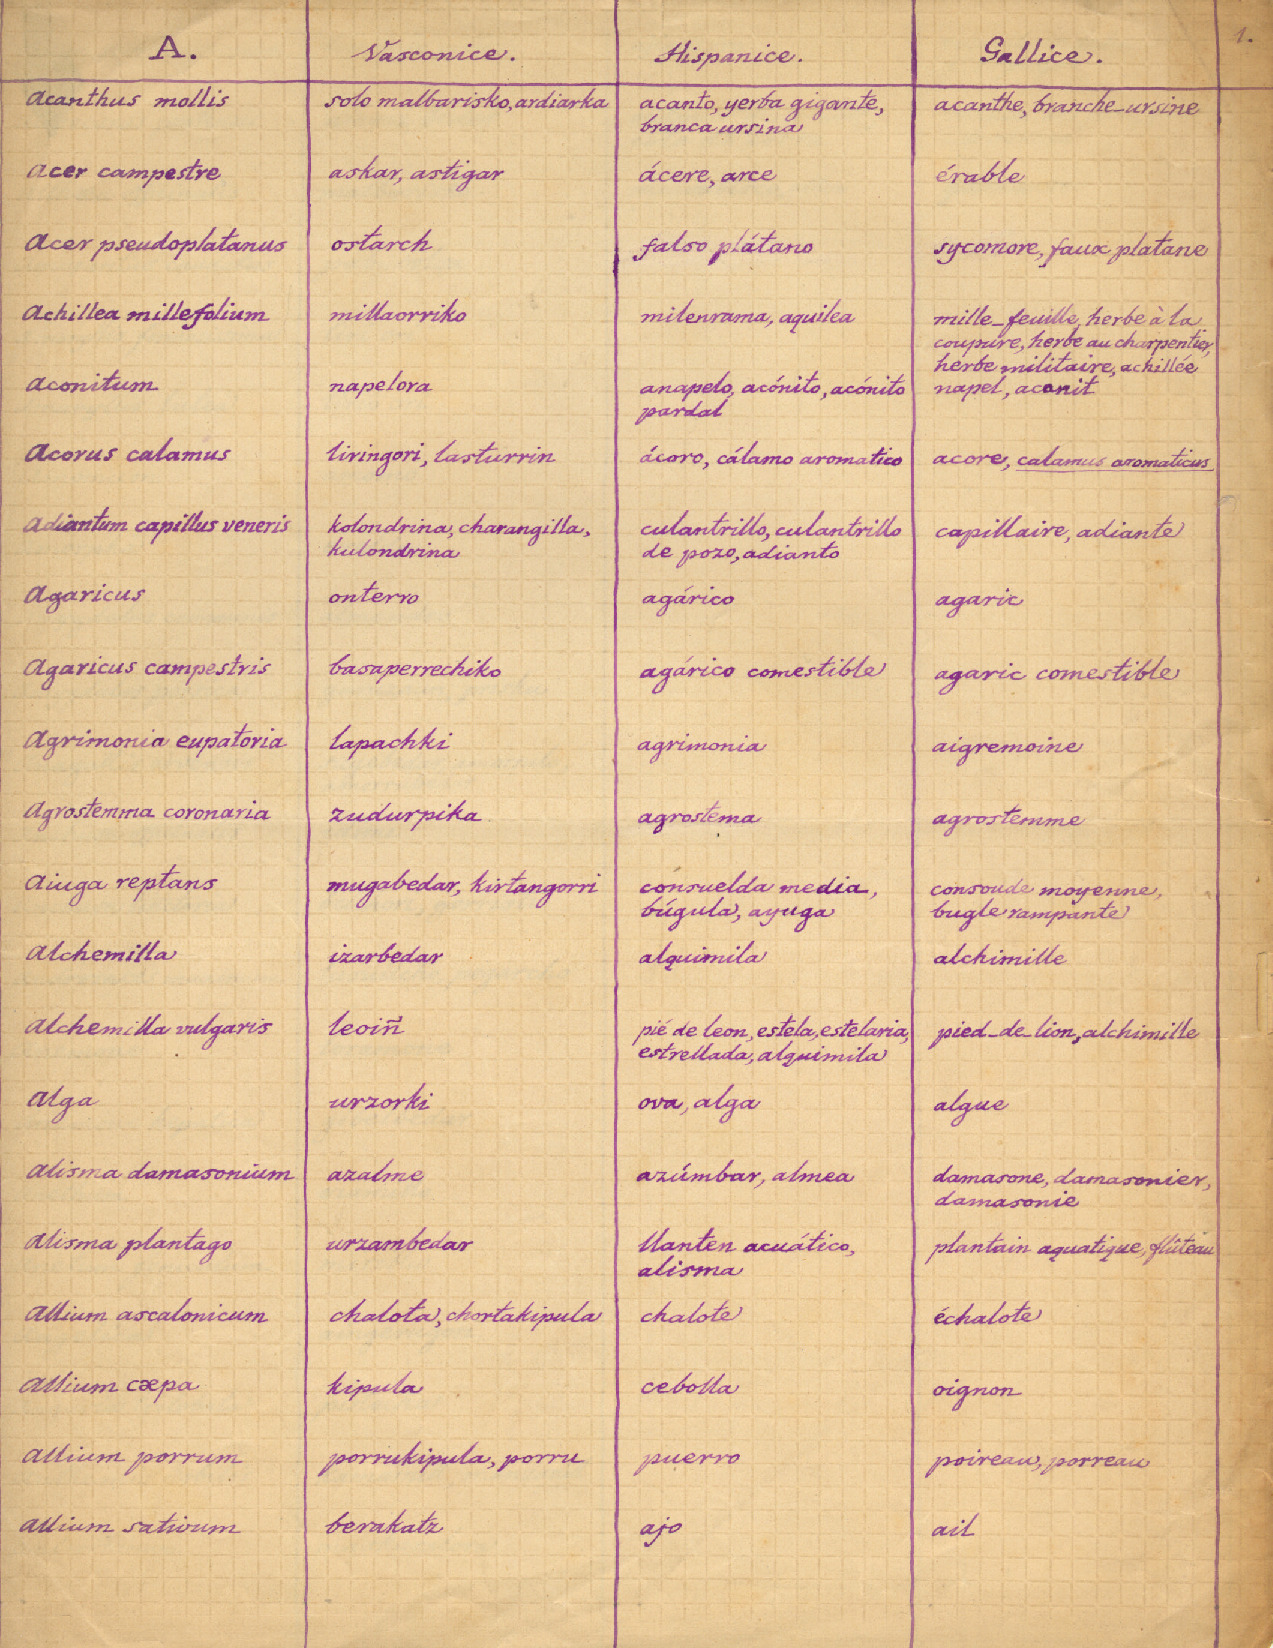 A. Vasconice. Hispanice. Gallice. 1.
Acanthus mollis solo malbarisko, ardiarka acanto, yerba gigante, acanthe, branche-ursine
branca ursina
Acer campestre askar, astigar ácere, arce érable
Acer pseudoplatanus ostarch falso plátano sycomore, faux platane
Achillea millefolium millaorriko milenrama, aquilea mille-feuille, herbe à la
coupure, herbe au charpentier,
herbe militaire, achillée
Aconitum napelora anapelo, acónito, acónito napel, aconit
pardal
Acorus calamus liringori, lasturrin ácoro, cálamo aromatico acore, calamus aromaticus
Adiantum capillus veneris kolondrina, charangilla, culantrillo, culantrillo capillaire, adiante
kulondrina de pozo, adianto
Agaricus onterro agárico agaric
Agaricus campestris basaperrechiko agárico comestible agaric comestible
Agrimonia eupatoria lapachki agrimonia aigremoine
Agrostemma coronaria zudurpika agrostema agrostemme
Aiuga reptans mugabedar, kirtangorri consuelda media, consoude moyenne,
búgula, ayuga bugle rampante
Alchemilla izarbedar alquimila alchimille
Alchemilla vulgaris leoiñ pié de leon, estela, estelaria, pied-de-lion, alchimille
estrellada, alquimila
Alga urzorki ova, alga algue
Alisma damasonium azalme azúmbar, almea damasone, damasonier,
damasonie
Alisma plantago urzambedar llanten acuático, plantain aquatique, flûteau
alisma
Allium ascalonicum chalota, chortakipula chalote échalote
Allium cæpa kipula cebolla oignon
Allium porrum porrukipula, porru puerro poireau, porreau
Allium sativum berakatz ajo ail